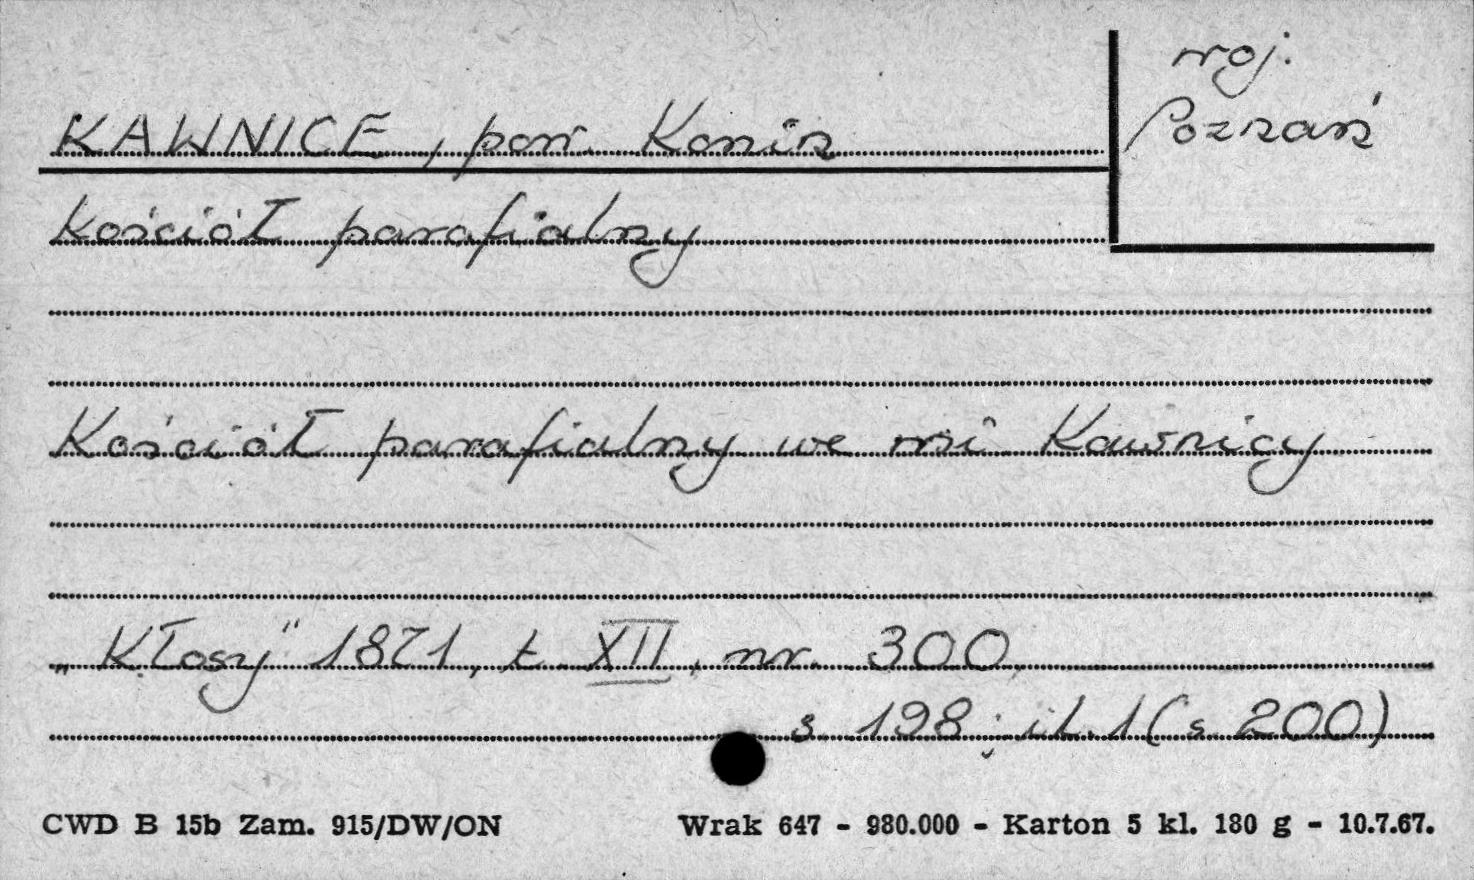 woj.
Poznań
KAWNICE, pow. Konin
Kościół parafialny
Kościół parafialny we wsi Kawnicy
„Kłosy" 1871, t. XII, nr. 300,
s. 198; il. 1 (s. 200)
CWD B 15b Zam. 915/DW/ON Wrak 647 - 980.000 - Karton 5 kl. 180 g - 10.7.67.